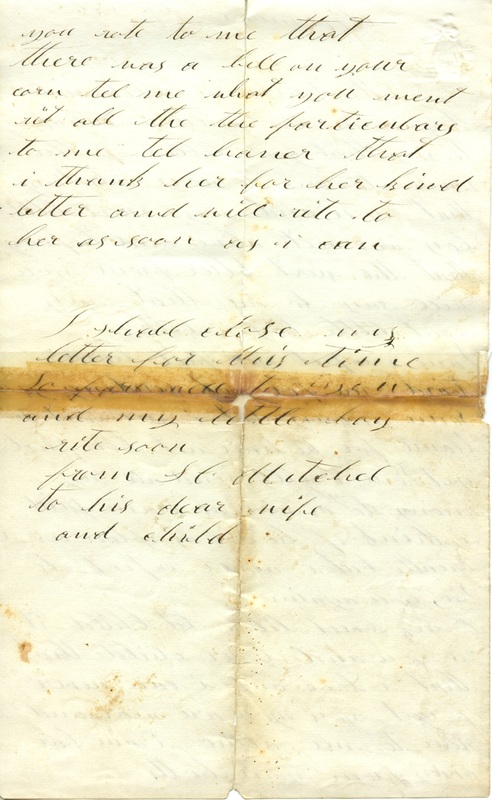 you rote to me that
there was a bill on your
corn tel me what you ment
rit all the the particulars
to me tel haner that
i thank her for her kind
letter and will rite to
her as soon as i can
I shall close my
letter for this time
So fare well
and my little boy
rite soon
from S C Mitchel
to his dear wife
and child